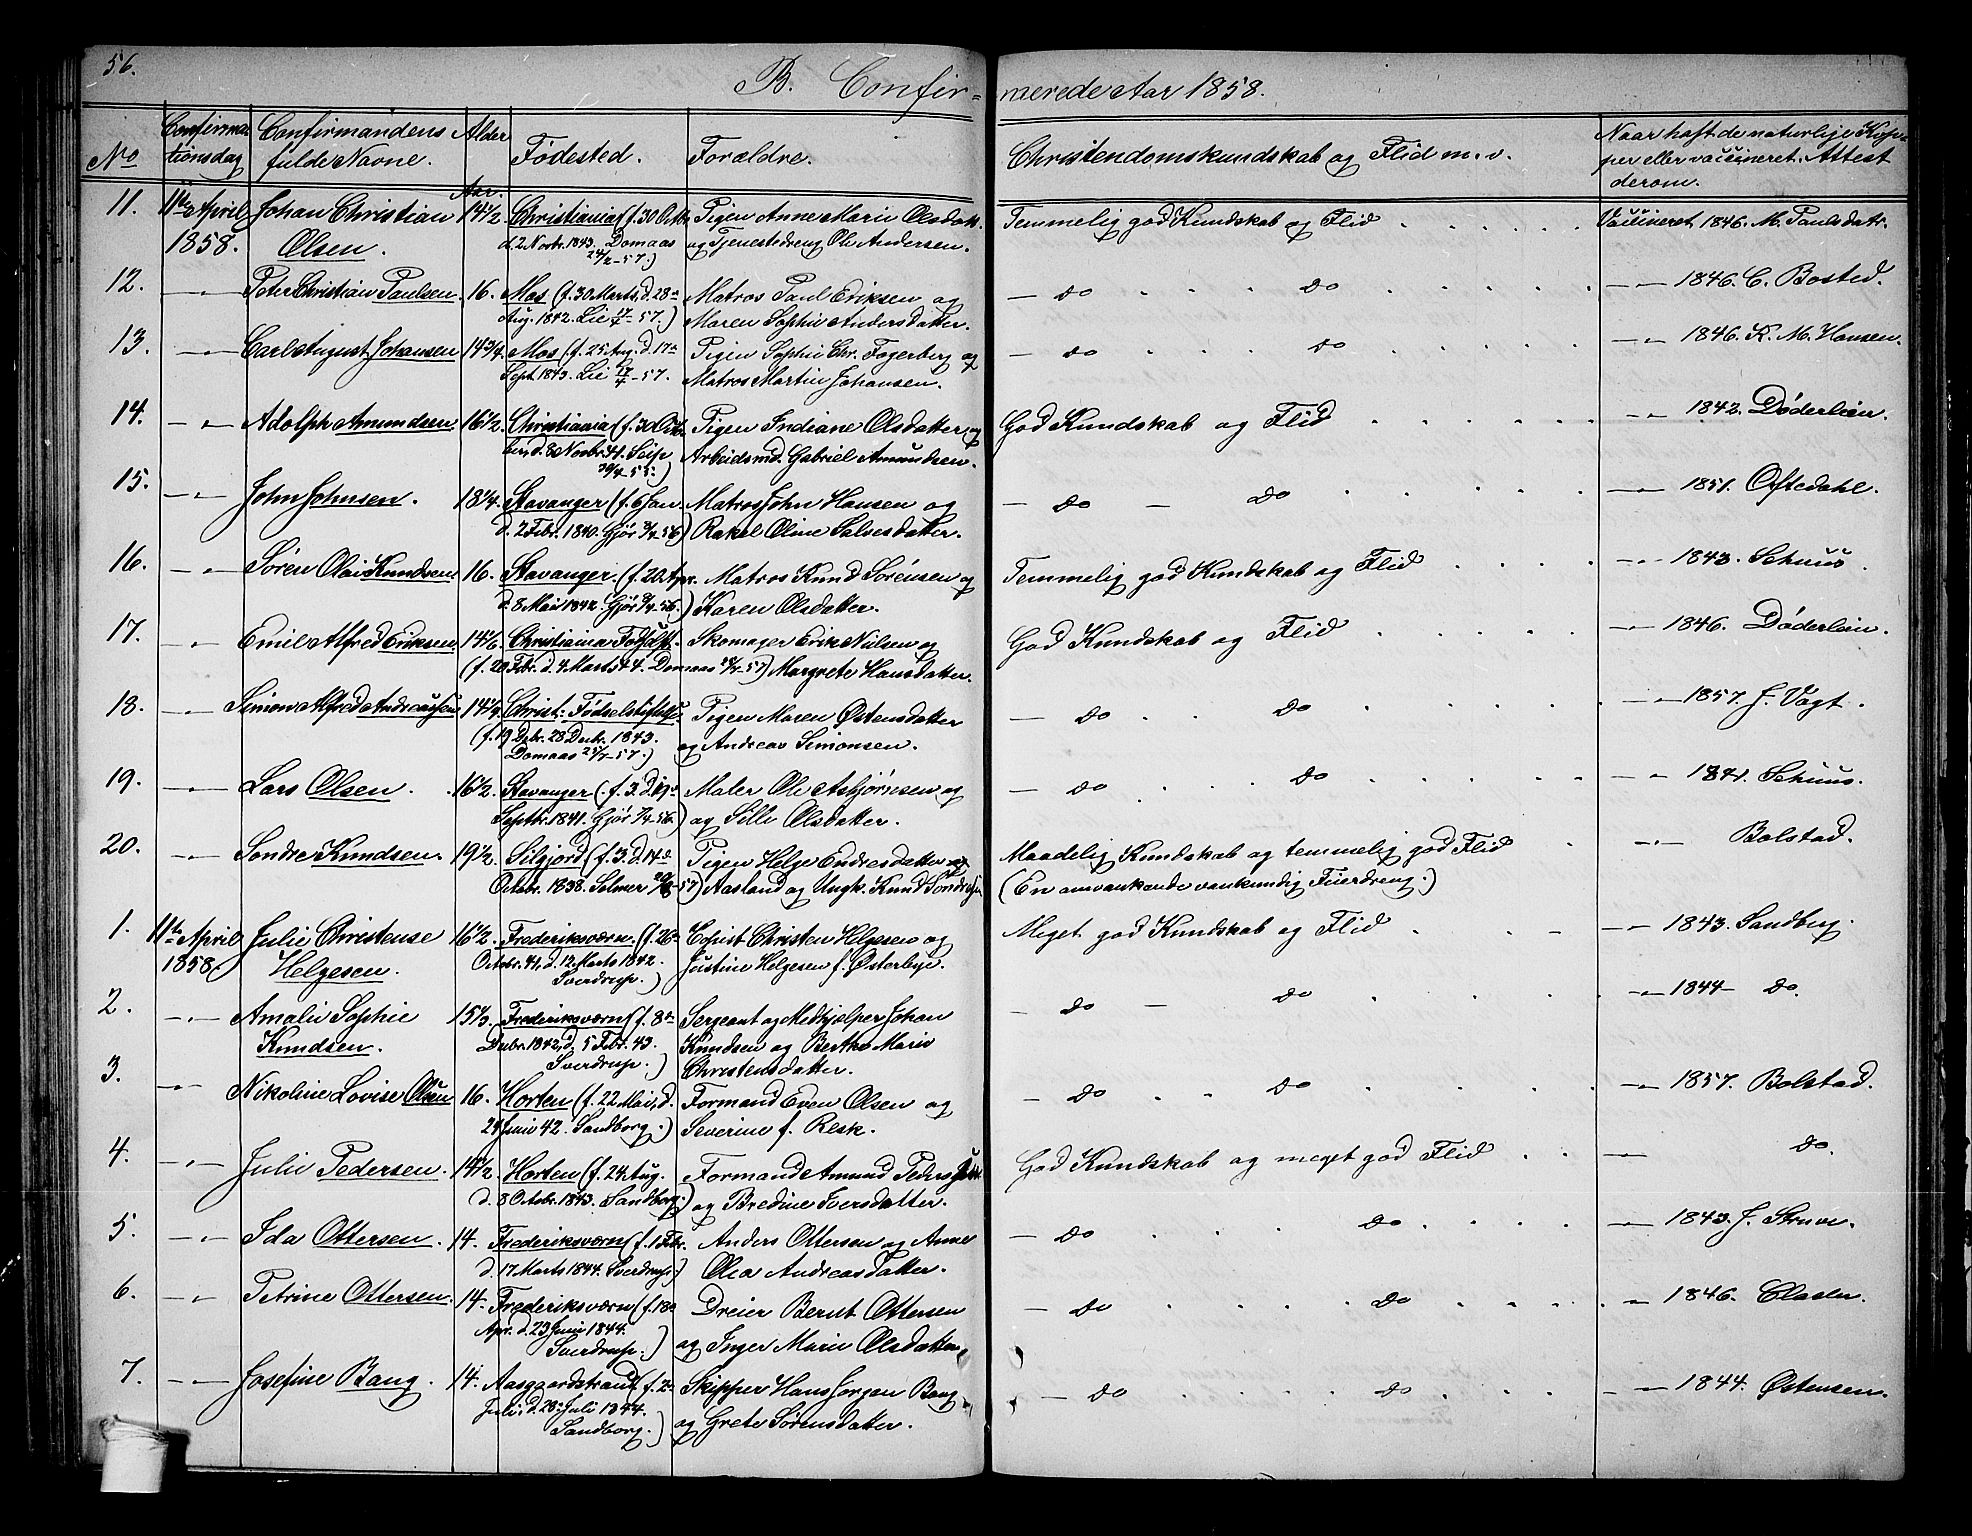 56.
B. Confir-
merede Aar 1858.
No
Confirma-
tionsdag
Confirmandens
fulde Navne.
Alder
Aar.
Fødested.
Forældre.
Christendomskundskab og Flid m. v.
Naar haft de naturlige Kop-
per eller vaccineret. Attest
derom.
11. 11te April Johan Christian 14 1/2 Christiania (f. 30 Octbr. Pigen Anne Marie Olsdatt. Temmelig god Kundskab og Flid Vaccineret 1846. M. Paulsdatr.
1858. Olsen. d. 2 Novbr. 1843. Domaas og Tjenestedreng Ole Andersen.
24/2-57.)
12. -"- Peter Christian Paulsen. 16. Mos (f. 30 Marts, d. 28de Matros Paul Eriksen og - do do -"- 1846. C. Bosted.
Aug. 1842. Lie 17/4-57.) Maren Sophie Andersdatter.
13. -"- Carl August Johansen 14 3/4 Mos (f. 25 Aug. d. 17de Pigen Sophie Chr. Fagerberg og - do do -"- 1846. K. M. Hansen.
Sept. 1843. Lie 17/4-57. Matros Martin Johansen.
14. -"- Adolph Amundsen 16 1/2 Christiania (f. 30 Octo- Pigen Indiane Olsdatter og God Kundskab og Flid -"- 1842. Døderlein.
ber, d. 8 Novbr. 41. Seip Arbeidsmd. Gabriel Amundsen.
30/4-55.)
15. -"- John Johnsen. 18 1/4. Stavanger (f. 6 Jan. Matros John Hansen og - do - do -"- 1851. Oftedahl.
d. 2 Febr. 1840. Gjør 7/4-56) Rakel Oline Salvesdatter.
16. -"- Søren Olai Knudsen. 16. Stavanger. (f. 20 Apr. Matros Knud Sørensen og Temmelig god Kundskab og Flid -"- 1843. Schuus.
d. 8 Mai 1842. Gjør 7/4-56.) Karen Olsdatter.
17. -"- Emil Alfred Eriksen 14 1/6. Christiania Fødselsst. Skomager Erik Nilsen og God Kundskab og Flid -"- 1846. Døderlein.
(f. 20 Febr. d. 4 Marts 44. Domaas 28/7-57) Margrete Hansdatter.
18. Simon Alfred Andreassen 14 1/4. Christ: Fødselsstiftelse. Pigen Maren Østensdatter - do do -"- 1857. J. Vogt.
(f. 19 Debr. 28 Decbr. 1843. og Andreas Simonsen.
Domaas 25/7-57.)
19. -"- Lars Olsen. 16 1/2. Stavanger (f. 3. d. 19de Maler Ole Asbjørnsen og - do do -"- 1841. Schuus.
Septbr. 1841. Gjør 7/4-56.) og Sille Olsdatter.
20. -"- Sondre Knudsen. 19 1/2. Silgjord (f. 3. d. 14de Pigen Helge Endresdatter Maadelig Kundskab og temmelig god Flid -"- Bolstad.
Octobr. 1838. Selmer 20/8-57) Aasland og Ungk. Knud Sondresen (En omvankende vankundig Fierdreng.)
1. 11te April Julie Christense 16 1/2. Frederiksværn. (f. 26de Copist Christen Helgesen og Meget god Kundskab og Flid -"- 1843. Sandberg.
1858. Helgesen. Octobr. 41, d. 12 Marts 1842. Justine Helgesen f. Østerbye.
Sverdrup.)
2. -"- Amalie Sophie 15 1/3. Frederiksværn (f. 8de Sergeant og Medhjælper Johan - do - do -"- 1844 - do.
Knudsen. Decbr. 1842, d. 5 Febr. 43. Knudsen og Berthe Marie
Sverdrup.) Christensdatter.
3. -"- Nikoline Lovise Olsen 16. Horten (f. 22 Mai, d. Formand Even Olsen og - do do -"- 1857. Bolstad.
24 Juni 42. Sandborg.) Severine f. Resk.
4. -"- Julie Pedersen. 14 1/2. Horten (f. 24 Aug. Formand Amund Pedersen God Kundskab og meget god Flid - do.
d. 8 Octobr. 1843. Sandborg.) og Bredine Iversdatter.
5. -"- Ida Ottersen. 14. Frederiksværn (f. 1 Febr. Anders Ottersen og Anne - do do -"- 1843. J. Struve.
d. 17 Marts 1844. Sverdrup.) Olea Andreasdatter.
6. -"- Petrine Ottersen. 14. Frederiksværn (f. 18de Dreier Bernt Ottersen - do do -"- 1846. Clasen.
Apr. d. 23 Juni 1844. og Inger Marie Olsdatter.
Sverdrup.)
7. -"- Josefine Bang. 14. Aasgaardstrand (f. 2de Skipper Hans Jørgen Bang - do do -"- 1844. Østensen.
Juli, d. 28 Juli 1844. og Grete Sørensdatter.
Sandborg.)